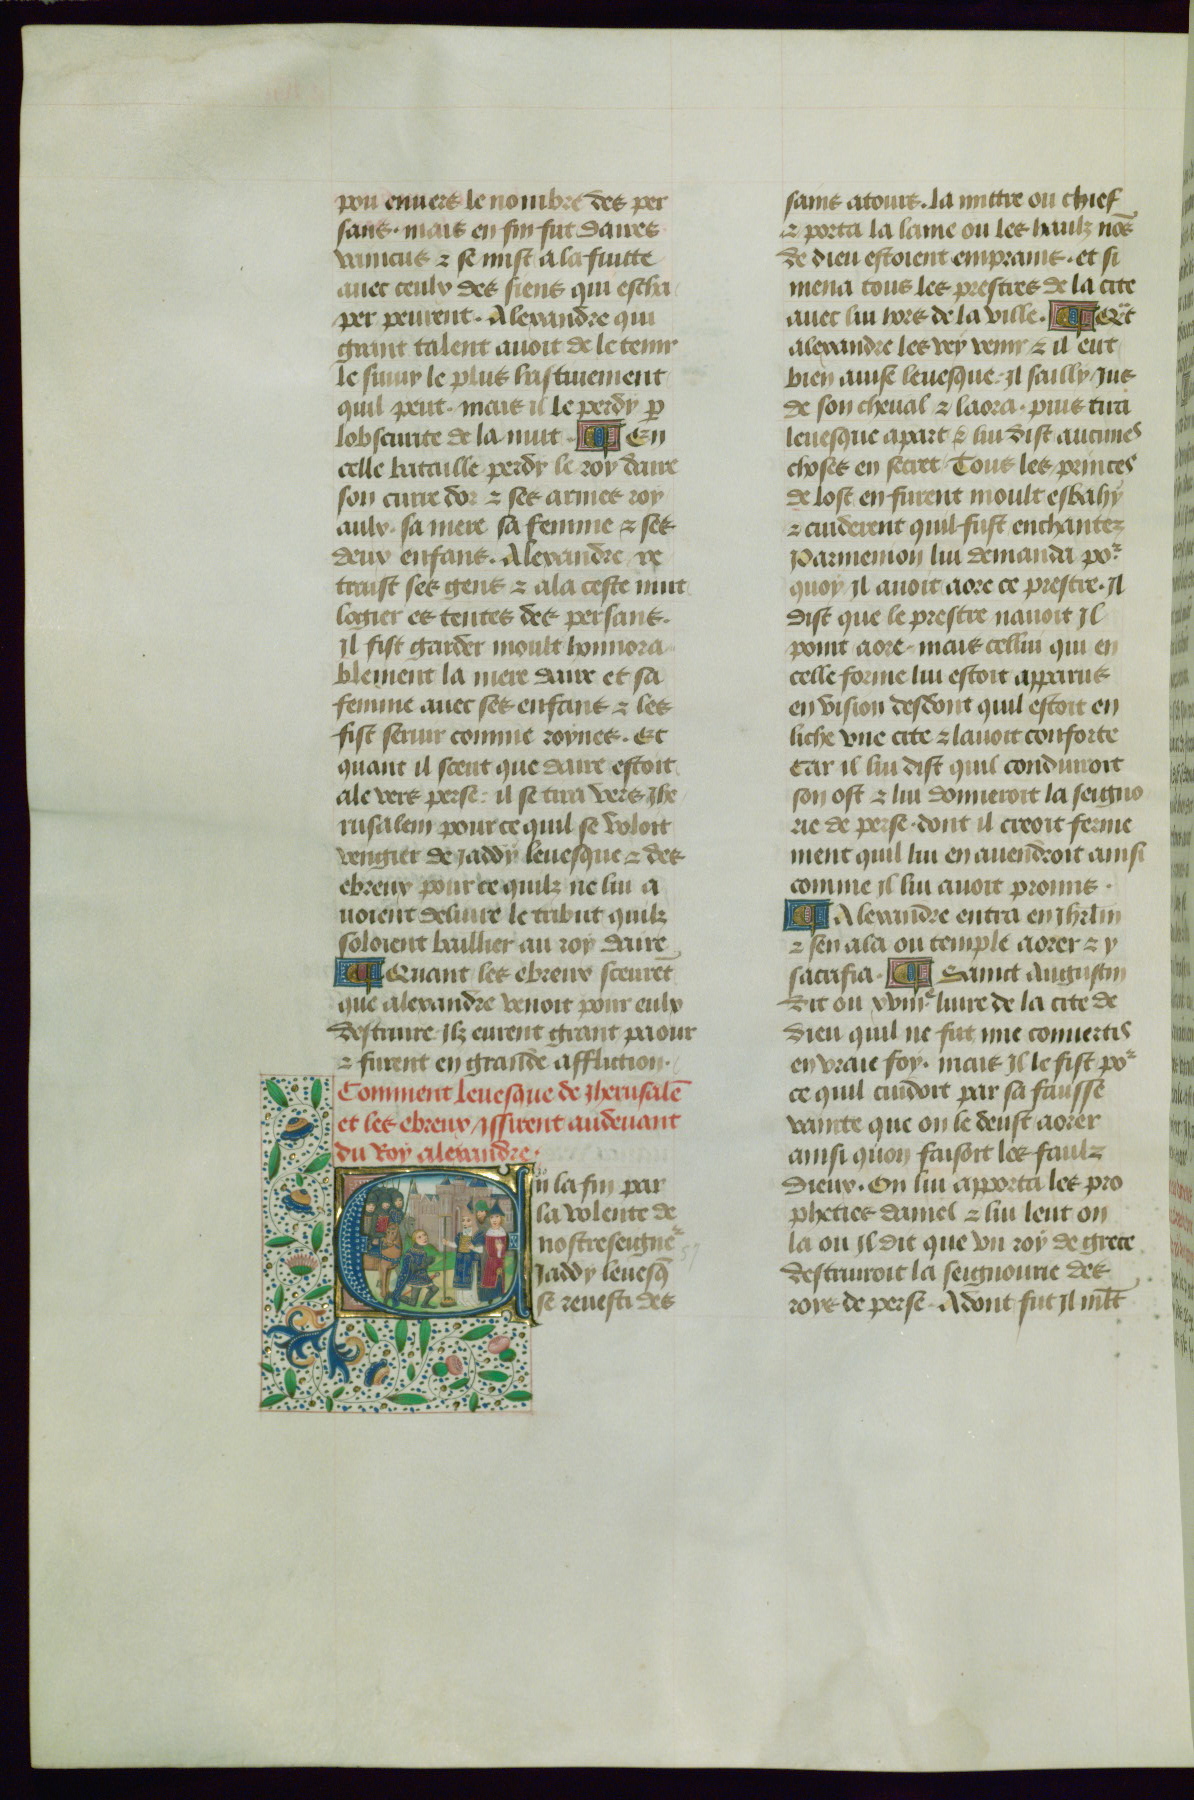 pou enuers le nombre des per
sans. mais en fin fut daires
vaincus ⁊ se mist a la fuitte
auec ceulx des siens qui escha
per peurent. Alexandre qui
grant talent auoit de le tenir
le suiuy le plus hastiuement
quil peut. mais il le perdy ꝑ
lobscurite de la nuit. ¶ En
celle bataille perdy le roy daire
son curre dor ⁊ ses armes roy
aulx. sa mere sa femme ⁊ ses
deux enfans. Alexandre re
traist ses gens ⁊ ala ceste nuit
logier es tentes des persans.
Il fist garder moult honnora
blement la mere daire et sa
femme auec ses enfans ⁊ les
fist seruir comme roynes. Et
quant il sceut que daire estoit
ale vers perse: il se tira vers Jhe
rusalem pour ce quil se voloit
vengier de Jaddy leuesque ⁊ des
ebreux pour ce quilz ne lui a
uoient deliure le tribut quilz
soloient baillier au roy daire
¶ Quant les ebreux sceurēt
que alexandre venoit pour eulx
destruire ilz eurent grant paour
⁊ furent en grande affliction.
Comment leuesque de Jherusalē
et les ebreux issirent audeuant
du Roy alexandre.
En la fin par
la volente de
nostreseigneʳ
Jaddy leuesq̄
se reuesti des
sains atours. la mittre ou chief
⁊ porta la lame ou les haulz nōs
de dieu estoient emprains. et si
mena tous les prestres de la cite
auec lui hors de la ville. ¶ Qᵃt
alexandre les vey venir ⁊ il eut
bien auise leuesque. Il sailly Jus
de son cheual ⁊ laora. puis tira
leuesque apart ⁊ lui dist aucunes
choses en secret. Tous les princes
de lost en furent moult esbahy
⁊ cuiderent quil fust enchantez
Parmenion lui demanda poʳ
quoy Il auoit aore ce prestre. Il
dist que le prestre nauoit Il
point aore. mais cellui qui en
celle forme lui estoit apparus
en vision desdont quil estoit en
liche vne cite ⁊ lauoit conforte
Car il lui dist quil conduiroit
son ost ⁊ lui donneroit la seigno
rie de perse. dont il creoit ferme
ment quil lui en auendroit ainsi
comme il lui auoit promis.
¶ Alexandre entra en Jhrlm
⁊ sen ala ou temple aorer ⁊ y
sacrifia. ¶ Sainct Augustin
dit ou xviiiᵉ liure de la cite de
dieu quil ne fut mie conuertis
en vraie foy. mais Il le fist poʳ
ce quil cuidoit par sa fausse
vainte que on le deust aorer
ainsi quon faisoit les faulz
dieux. On lui apporta les pro
pheties daniel ⁊ lui leut on
la ou Il dit que vn roy de grece
destruiroit la seignourie des
roys de perse. Adont fut Il ml̄t